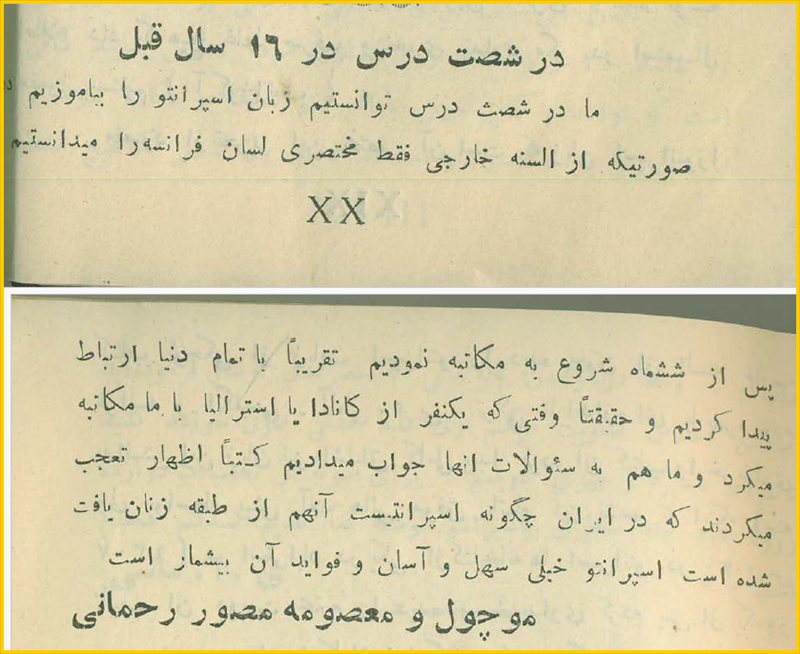 در شصت درس در ۱۶ سال قبل
ما در شصت درس توانستیم زبان اسپرانتو را بیاموزیم در
صورتیکه از السنه خارجی فقط مختصری لسان فرانسه را میدانستیم
XX
پس از ششماه شروع به مکاتبه نمودیم تقریباً با تمام دنیا ارتباط
پیدا کردیم و حقیقتاً وقتی که یکنفر از کانادا یا استرالیا با ما مکاتبه
میکرد و ما هم به سئوالات انها جواب میدادیم کتباً اظهار تعجب
میکردند که در ایران چگونه اسپرانتیست آنهم از طبقه زنان یافت
شده است اسپرانتو خیلی سهل و آسان و فواید آن بیشمار است
موچول و معصومه مصور رحمانی